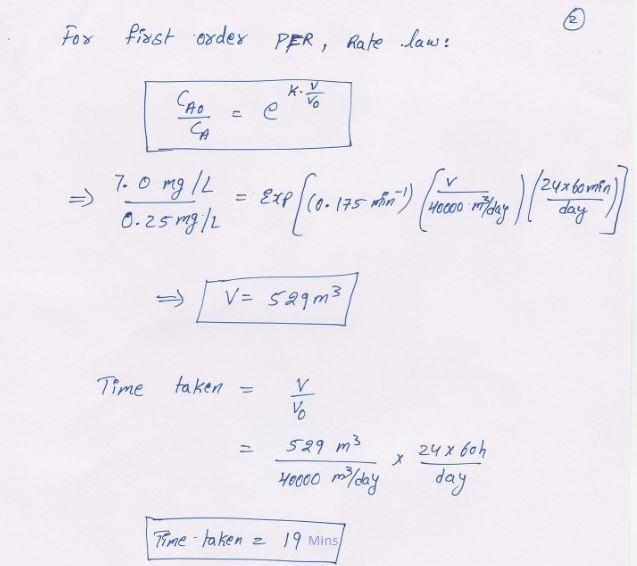 2
For first order PFR, Rate law:
C_A0/C_A = e^(K·V/V_0)
⇒ 7.0 mg/L / 0.25 mg/L = Exp[(0.175 min⁻¹) (V / 40000 m³/day) (24x60min / day)]
⇒ V = 529 m³
Time taken = V/V_0
= 529 m³ / 40000 m³/day x 24x60h / day
Time taken = 19 Mins